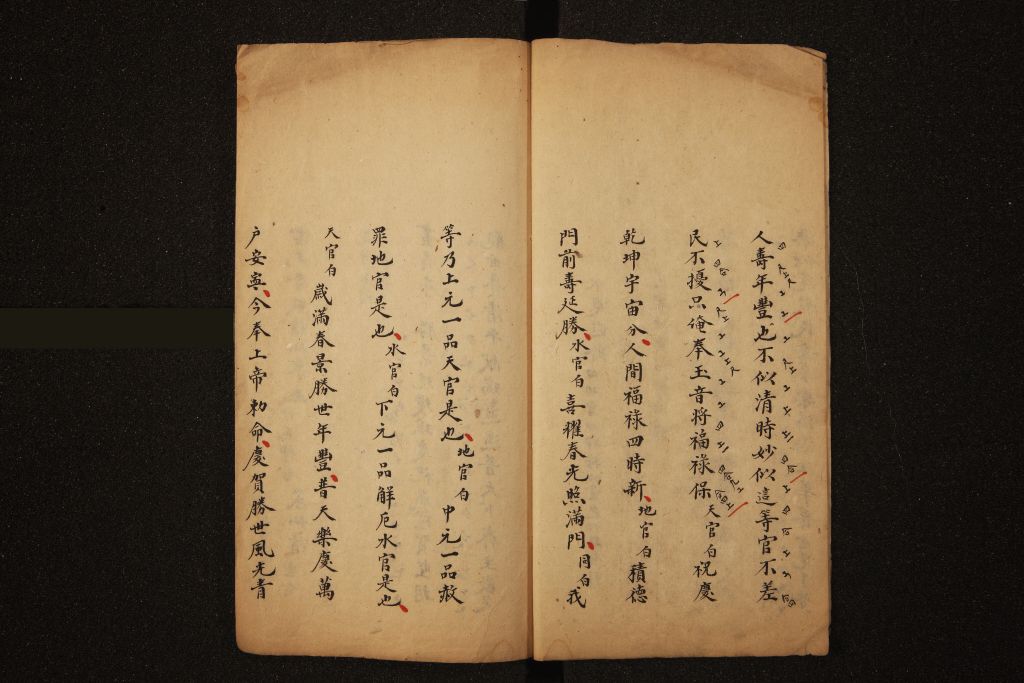 人壽年豐也不似清時妙似這等官不差
民不擾只俺奉玉音将福禄保天官白祝慶
乾坤宇宙分人間福禄四時新地官白積德
門前壽延勝水官白喜耀春光照滿門同白我
等乃上元一品天官是也地官白中元一品赦
罪地官是也水官白下元一品解厄水官是也
天官白歳滿春景勝世年豐普天樂慶萬
户安寧今奉上帝勅命慶賀勝世風光青